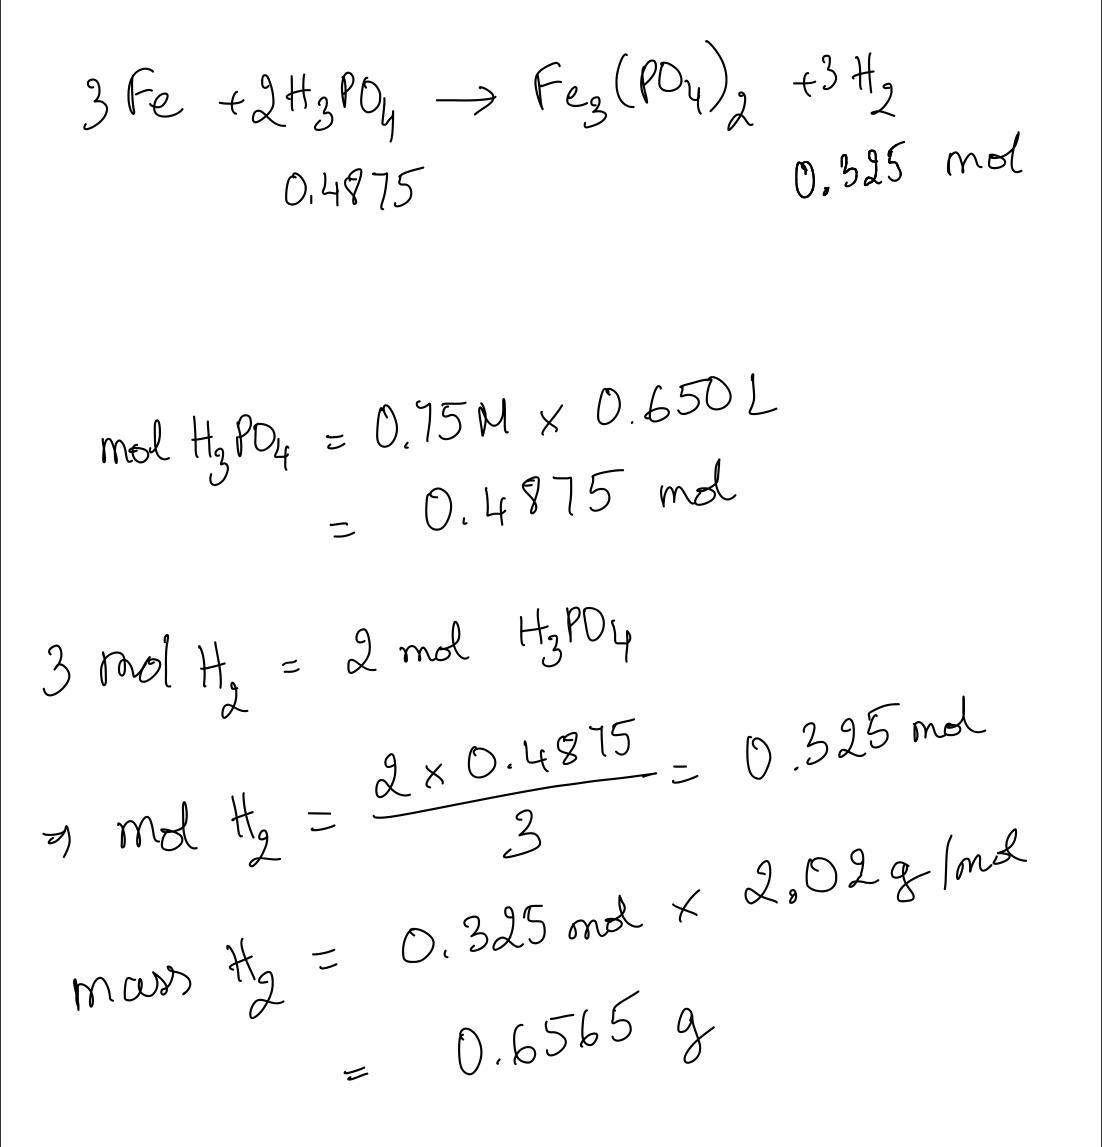 3 Fe + 2H₃PO₄ → Fe₃(PO₄)₂ + 3 H₂
0.4875 0.325 mol
mol H₃PO₄ = 0.75 M × 0.650 L
= 0.4875 mol
3 mol H₂ = 2 mol H₃PO₄
⇒ mol H₂ = 2 × 0.4875 / 3 = 0.325 mol
mass H₂ = 0.325 mol × 2.02 g/mol
= 0.6565 g